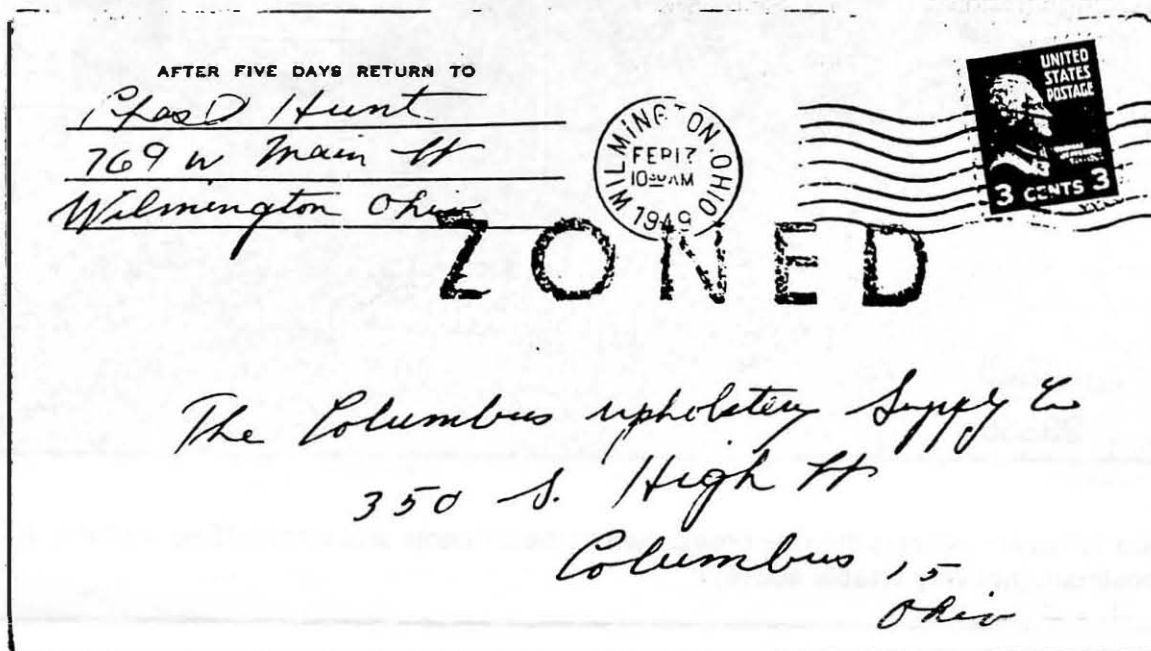 AFTER FIVE DAYS RETURN TO
Chas D Hunt
769 W Main St
Wilmington Ohio
WILMINGTON OHIO
FEB 17
10 30 AM
1949
UNITED
STATES
POSTAGE
3 CENTS 3
ZONED
The Columbus upholstery Supply Co
350 S. High St
Columbus, 15
Ohio